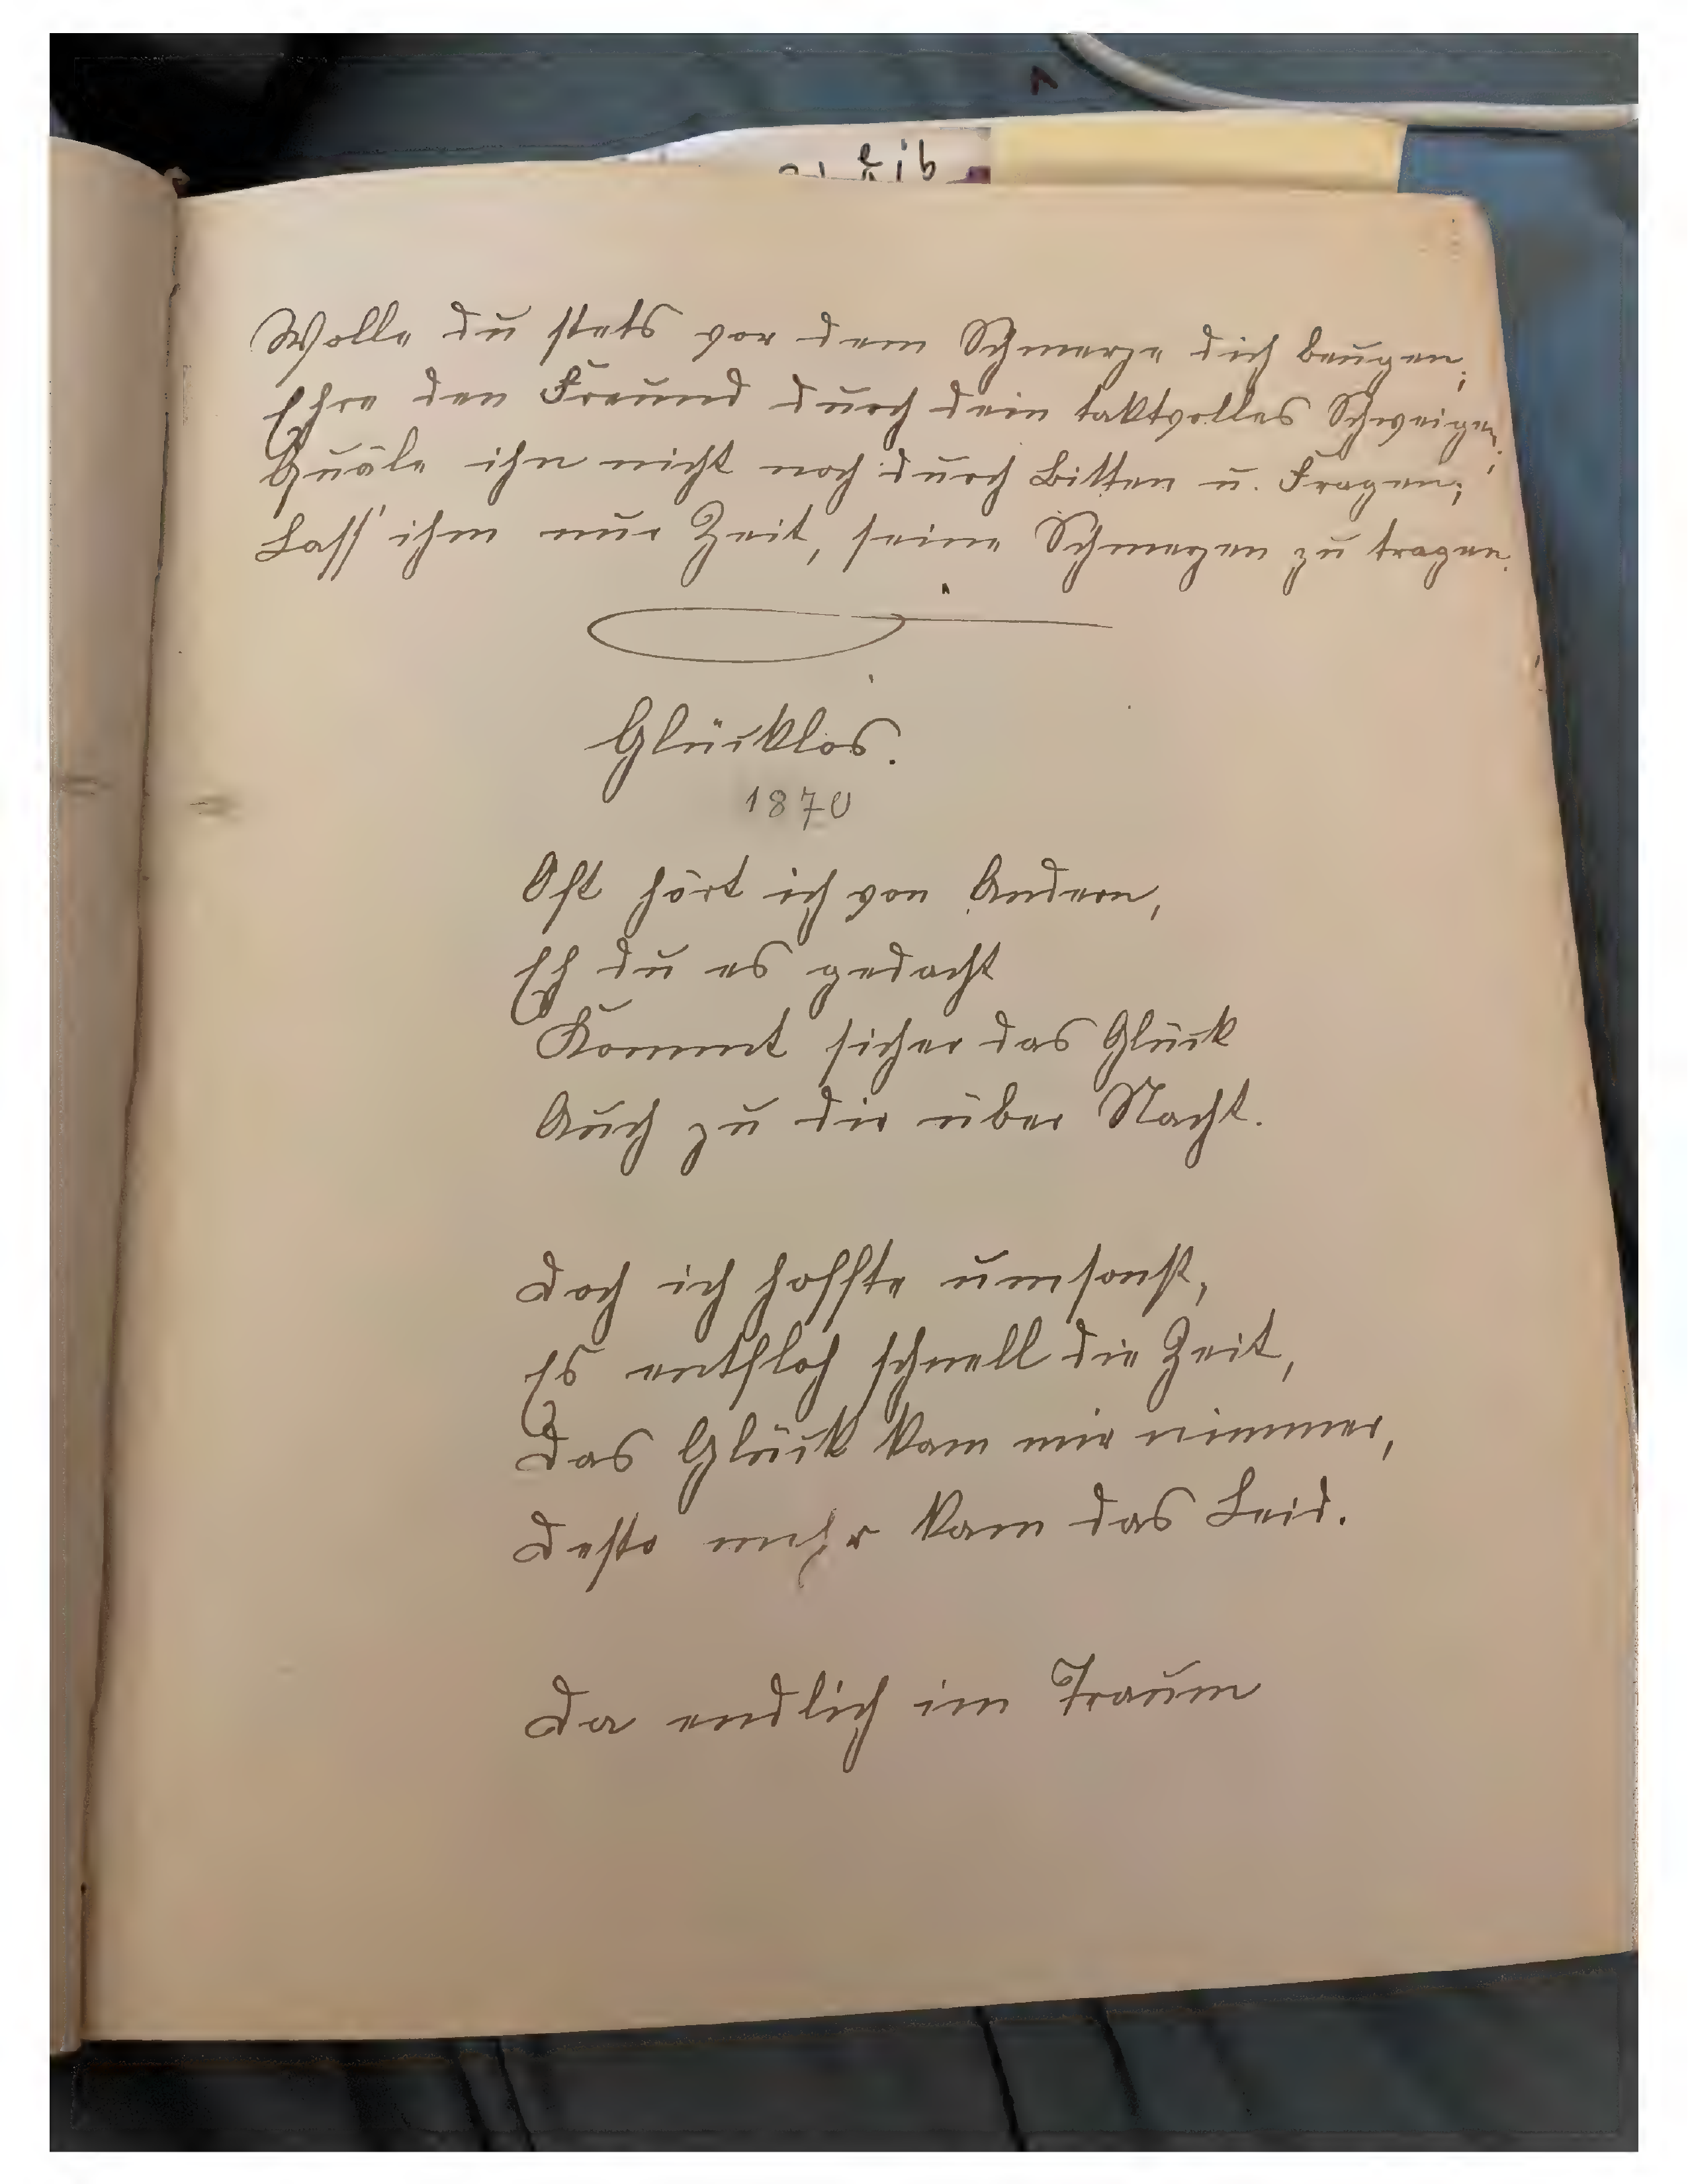 Wolle du stets vor dem Schmerze dich beugen;
Ehre den Freund durch dein taktvolles Schweigen;
Quäle ihn nicht noch durch Bitten u. Fragen;
Lass' ihm nur Zeit, seine Schmerzen zu tragen.
Glücklos.
1870
Oft hört ich von Andern,
Eh du es gedacht
Kommt sicher das Glück
Auch zu dir über Nacht.
Doch ich hoffte umsonst,
Es entfloh schnell die Zeit,
Das Glück kam mir nimmer,
Desto mehr kam das Leid.
Da endlich im Traum